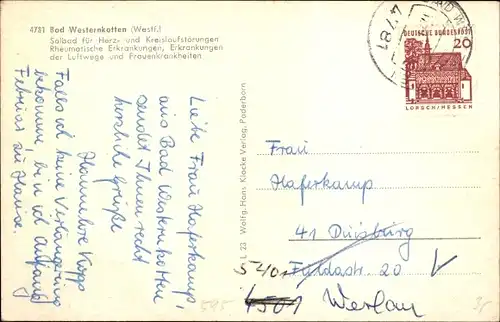 4781 Bad Westernkotten (Westf.)
Solbad für Herz- und Kreislaufstörungen
Rheumatische Erkrankungen, Erkrankungen
der Luftwege und Frauenkrankheiten
Liebe Frau Haferkamp,
aus Bad Westernkotten
sendet Ihnen recht
herzliche Grüße
Hannelore
Falls ich keine Verlängerung
bekomme, bin ich Anfang
Februar zu Hause.
L 23 Wolfg. Hans Klocke Verlag, Paderborn
DEUTSCHE BUNDESPOST
20
LORSCH/HESSEN
Frau
Haferkamp
41 Duisburg
Fuldastr. 20
5401
4501
Werlau
595